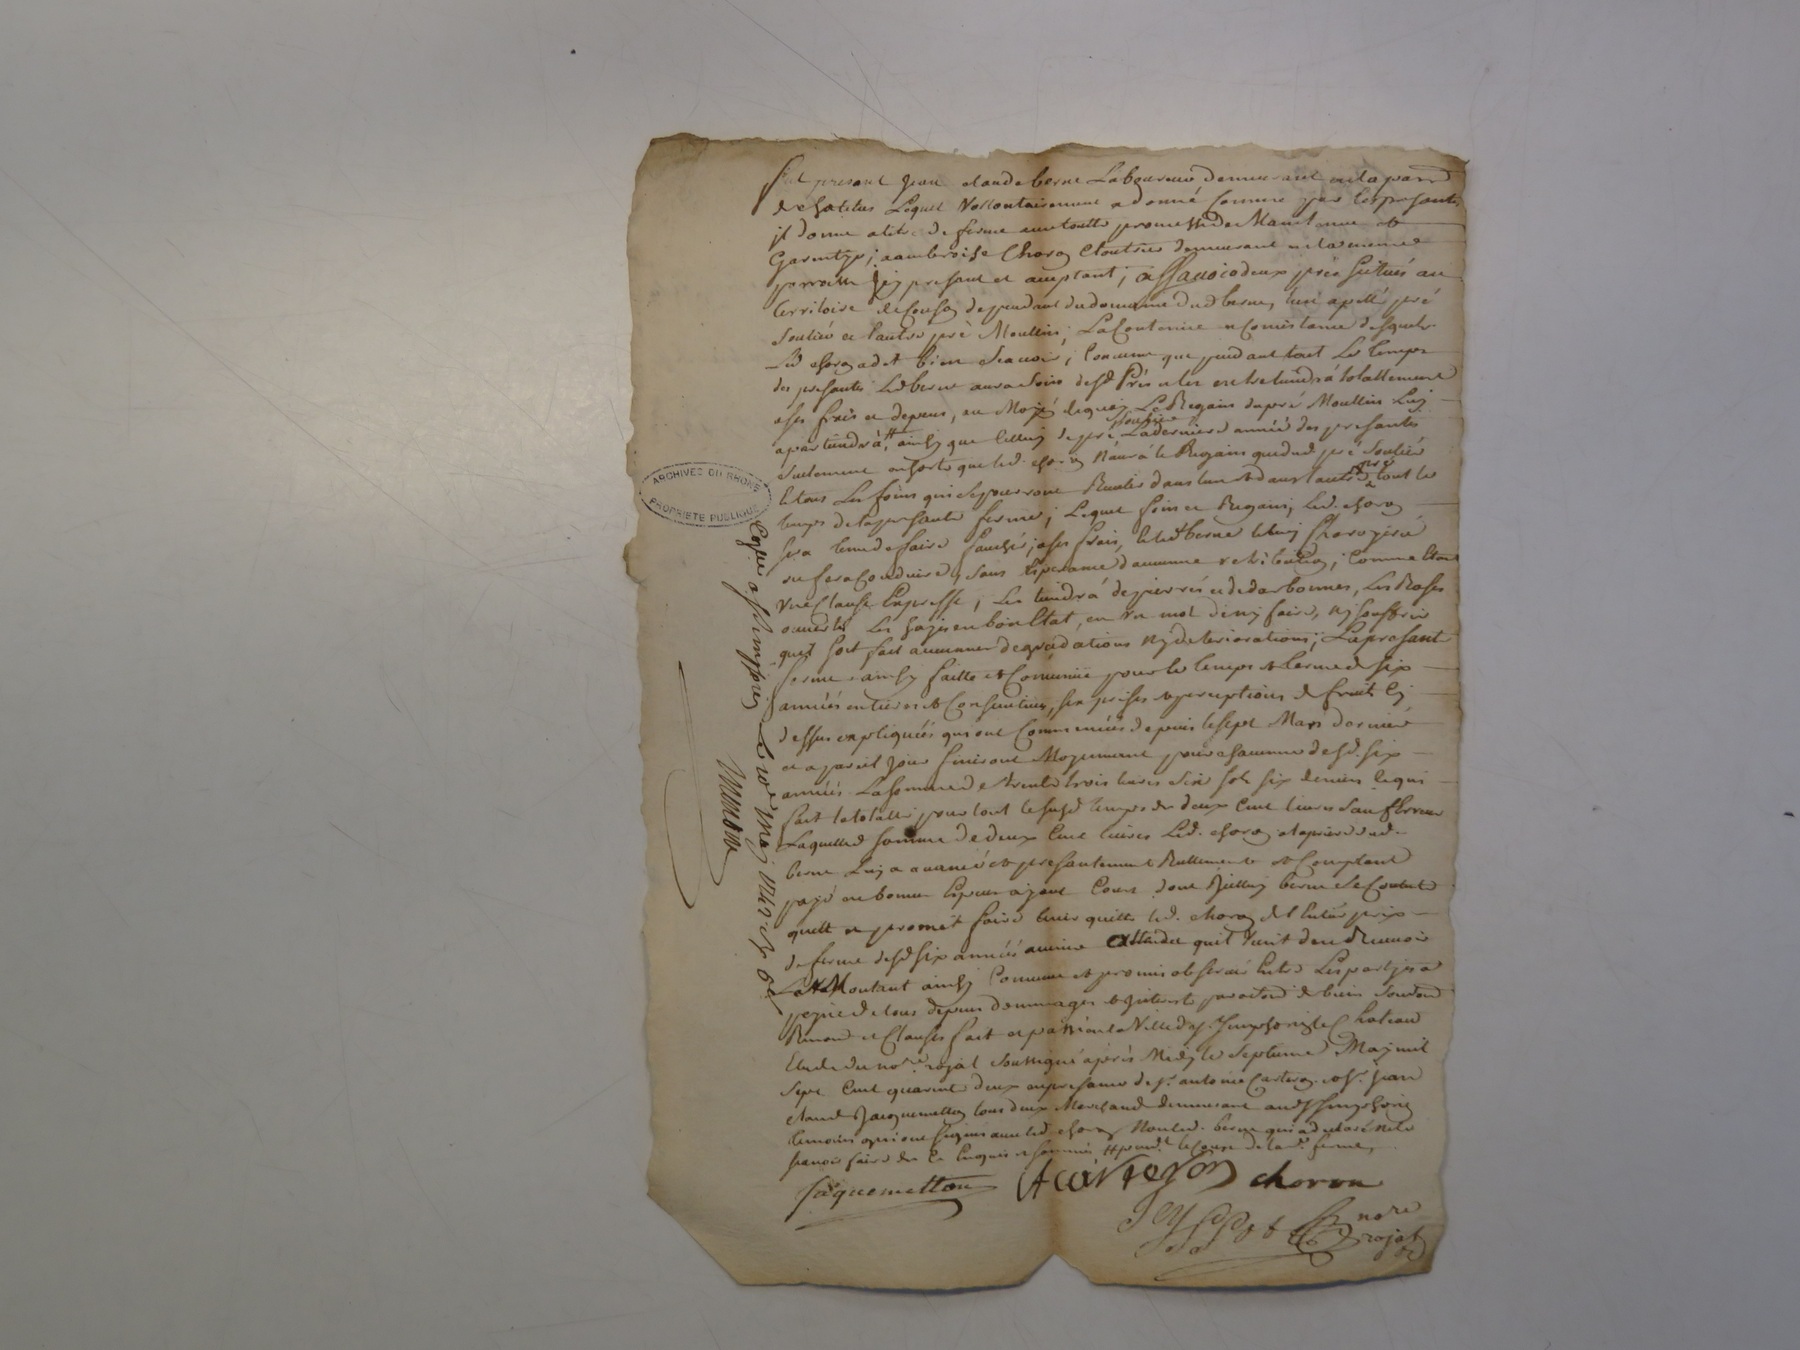 fut present Jean claude berne Laboureur demeurant en la parr.
de chatelus Lequel vollontairement a donné comme par les presantes
il donne a titre de ferme avec toutte promesse de Maintenue et
Garentye; a ambroise Choron Cloutier demeurant en la mesme
parroisse icy present et aceptant; assavoir deux prés scitués au
territoire de dependant du domaine dud berne, lun apellé pré
soulier et l'autre pré Moullin; La Contenue et Consistance desquels
Led choron a dit bien scavoir; Convenu que pendant tout Le temps
des presantes Led berne aura soin desd Prés et les entretiendrá totallement
a ses frais et depens, au Moyen dequoy Le Regain du pré Moullin Luy
apartiendrá, # ainsy que celluy du pré soulier La derniere année des presantes
seulement en sorte que led. choron n'aura le Regain que dud pré soulier
Et tous Les foins qui se pourront Recolter dans lun et dans lautre pré tout le
temps de la presante ferme; Lequel foin et Regain, Led. choron
sera tenu de faire faucher, a ses frais, et led berne le luy
ou fera Conduire, sans Esperance d'aucune retribution; comme Etant
une Clause Expresse; Les tiendrá depierrés et dedarbonnés, Les Rases
ouvertes Les hayes en bon Etat, en un mot dy ny faire, ny souffrir
quil soit fait aucunes degradations ny deteriorations; La presant
ferme ainsy faitte et Convenüe pour le temps et terme de six
années entieres et Consecutives, six prises et perceptions de fruits Cy
dessus expliquées qui ont Commencées depuis le sept Mars dernier
et a pareil jour finiront Moyennant pour chacunne desd. six
années La somme de trente trois livres six sols six deniers ce qui
fait la totallité pour tout le susd temps de deux Cent livres sauf Erreur
Laquelle somme de deux Cent livres Led. choron a la priere dud.
berne Luy a avancé et presantement Reellement et Comptant
payé en bonnes Especes ayant Cours dont Icelluy berne se Contente
quitte et promet faire tenir quitte led. choron de l'Entier prix
de ferme desd six années attendu quil vient den Recevoir
Le Montant ainsy Convenu et promis observer Entre Les partyes a
peyne de tous depens dommages et interest par
Renon. et Clauses fait et passé en la Ville de St. Simphorien le Chateau
Etude du nore. royal soussigné après Midy le septieme May mil
sept Cent quarent deux en presance de sr. antoine Carteron et sr. Jean
claude Jacquemetton tous deux Marchand demeurant aud St Simphorien
temoins qui ont signés avec led choron Non led. berne qui a declaré ne le
scavoir faire de Ce Enquis et sommés # pend.t le Cours de lad. ferme,
Jaquemetton A carteron choron
nore
royal
Conllé a St simphorien Le 10e May 1742
ARCHIVES DU RHÔNE
PROPRIETE PUBLIQUE